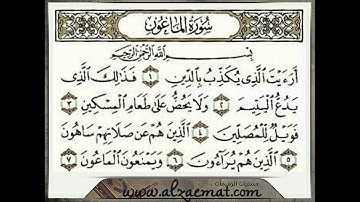 سورة الماعون
بسم الله الرحمن الرحيم
أَرَءَيْتَ الَّذِي يُكَذِّبُ بِالدِّينِ ١ فَذَٰلِكَ الَّذِي
يَدُعُّ الْيَتِيمَ ٢ وَلَا يَحُضُّ عَلَىٰ طَعَامِ الْمِسْكِينِ ٣
فَوَيْلٌ لِّلْمُصَلِّينَ ٤ الَّذِينَ هُمْ عَن صَلَاتِهِمْ سَاهُونَ
٥ الَّذِينَ هُمْ يُرَاءُونَ ٦ وَيَمْنَعُونَ الْمَاعُونَ ٧
www.alzaemat.com